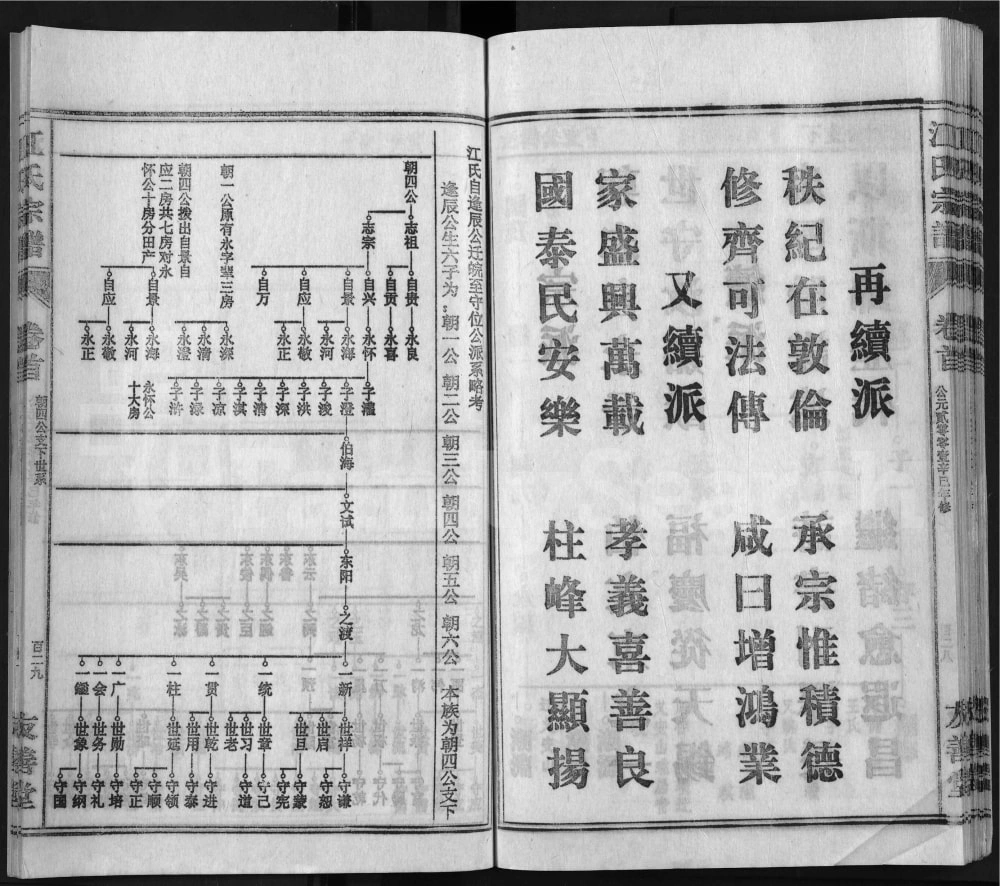 江氏宗譜
卷首
公元貳零零壹辛巳年修
友善堂
再續派
秩紀在敦倫
承宗惟積德
修齊可法傳
咸曰增鴻業
又續派
家盛興萬載
孝義喜善良
國泰民安樂
柱峰大顯揚
江氏自逢辰公迁皖至守位公派系略考
逢辰公生六子为:朝一公 朝二公 朝三公 朝四公 朝五公 朝六公 本族为朝四公支下
朝四公 志祖 自贵 永良
自贡 永喜
志宗 自兴 永怀
自景 永海
永河
自应 永敏
永正
自万
朝一公原有永字辈三房
永深
永清
永澄
朝四公拨出自景自
应二房共七房对永
怀公十房分田产
自景 永海
永河
自应 永敏
永正
子澧
子澄
子浚
子洪
子深
子清
子淇
子凉
子渌
子浒
永怀公
十大房
伯海
文试
东阳
之渡
一新
一统
一贯
一柱
一广
一会
一鑑
世祥
世眉
世旦
世章
世习
世老
世乾
世用
世延
世勋
世务
世象
守谦
守恕
守蒙
守宪
守己
守道
守进
守泰
守领
守顺
守正
守培
守礼
守纲
守国
江氏宗譜
卷首
朝四公支下世系
百二九
友善堂